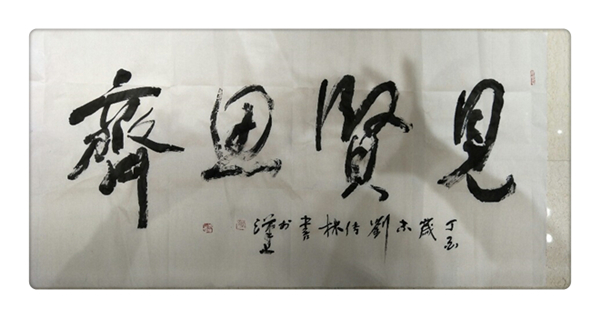 見賢思齊
丁酉歲末劉佳林書於漢上